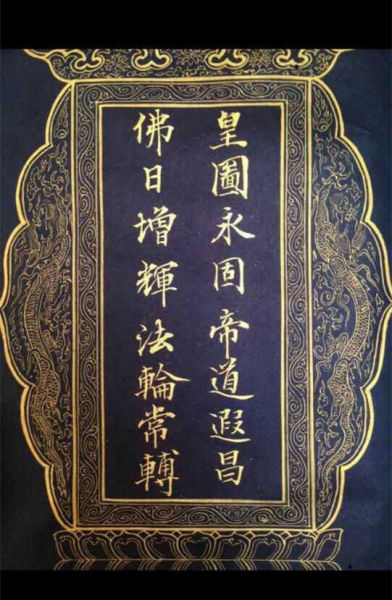 皇圖永固帝道遐昌
佛日增輝法輪常轉